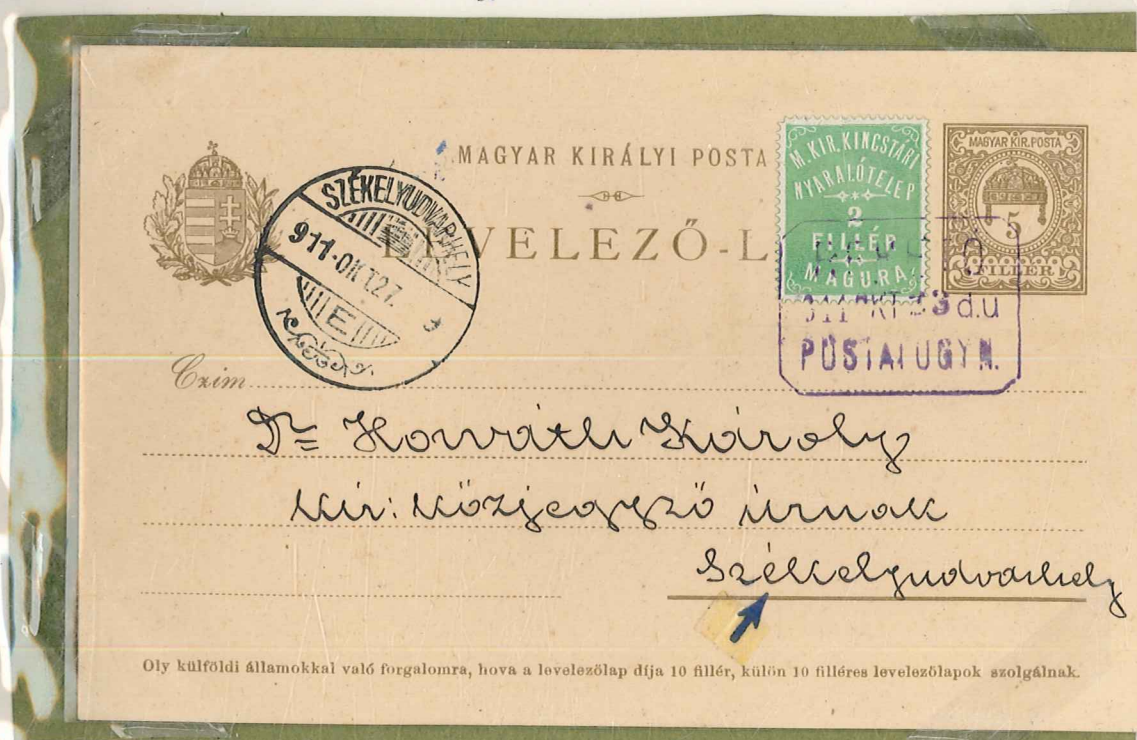 MAGYAR KIRÁLYI POSTA
VELEZŐ-L
M. KIR. KINCSTÁRI
NYARALÓTELEP
2
FILLÉR
MAGURA
MAGYAR KIR. POSTA
5
FILLÉR
SZÉKELYUDVARHELY
911·OKT27
E
d.u
POSTAI UGYN.
Czim
Dr Horváth Károly
kir: közjegyző úrnak
Székelyudvarhely
Oly külföldi államokkal való forgalomra, hova a levelezőlap díja 10 fillér, külön 10 filléres levelezőlapok szolgálnak.